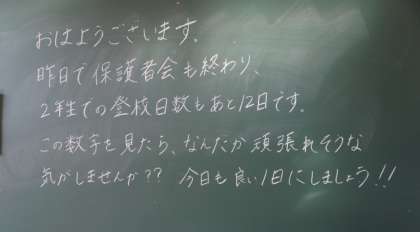 おはようございます。
昨日で保護者会も終わり、
2年生での登校日数もあと12日です。
この数字を見たら、なんだか頑張れそうな
気がしませんか?? 今日も良い1日にしましょう!!